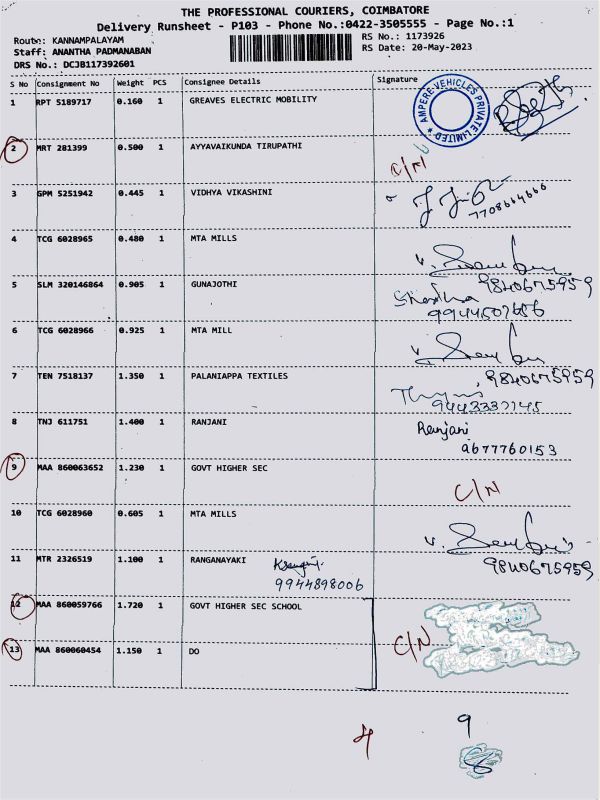 THE PROFESSIONAL COURIERS, COIMBATORE
Delivery Runsheet - P103 - Phone No.:0422-3505555 - Page No.:1
Route: KANNAMPALAYAM RS No.: 1173926
Staff: ANANTHA PADMANABAN RS Date: 20-May-2023
DRS No.: DCJB117392601
S No Consignment No Weight PCS Consignee Details Signature
1 RPT 5189717 0.160 1 GREAVES ELECTRIC MOBILITY
AMPERE VEHICLES PRIVATE LIMITED
2 MRT 281399 0.500 1 AYYAVAIKUNDA TIRUPATHI
C/N
3 GPM 5251942 0.445 1 VIDHYA VIKASHINI
7708664666
4 TCG 6028965 0.480 1 MTA MILLS
9840675959
5 SLM 320146864 0.905 1 GUNAJOTHI
9944507656
6 TCG 6028966 0.925 1 MTA MILL
9840675959
7 TEN 7518137 1.350 1 PALANIAPPA TEXTILES
9443337145
8 TNJ 611751 1.400 1 RANJANI Ranjani
9677760153
9 MAA 860063652 1.230 1 GOVT HIGHER SEC
C/N
10 TCG 6028960 0.605 1 MTA MILLS
9840675959
11 MTR 2326519 1.100 1 RANGANAYAKI
9944898006
12 MAA 860059766 1.720 1 GOVT HIGHER SEC SCHOOL
C/N
13 MAA 860060454 1.150 1 DO
4 9